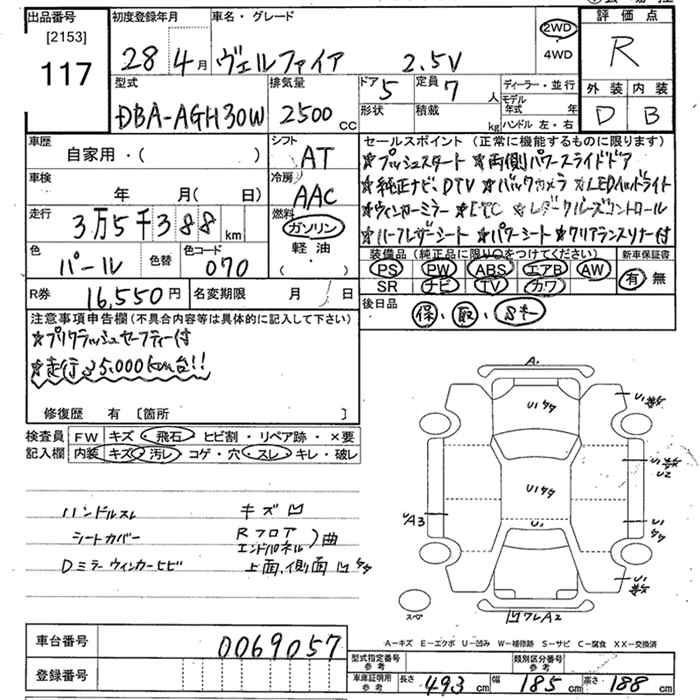 出品番号 初度登録年月 車名・グレード 評価点
[2153]
117 28 4月 ヴェルファイア 2.5V 2WD 4WD R
型式 排気量 ドア 5 定員 7人 ディーラー・並行 外装 内装
DBA-AGH30W 2500CC 形状 積載 kg モデル年式 年 D B
ハンドル 左・右
車歴 シフト セールスポイント（正常に機能するものに限ります）
自家用・( ) AT ★プッシュスタート ★両側パワースライドドア
車検 冷房 ★純正ナビ、DTV ★バックカメラ ★LEDヘッドライト
年 月( 日) AAC ★ウィンカーミラー ★ETC ★レーダークルーズコントロール
走行 燃料 ★ハーフレザーシート ★パワーシート ★クリアランスソナー付
3万5千388km ガソリン
色 色替 色コード 軽油 装備品（純正品に限り○をつけてください） 新車保証書
パール 070 ( ・ ) PS PW ABS エアB AW 有 無
SR ナビ TV カワ
R券 16,550円 名変期限 月 日 後日品 保、取、Sキー
注意事項申告欄（不具合内容等は具体的に記入して下さい）
★プリクラッシュセーフティー付
★走行35,000km台!!
修復歴 有 [箇所 ]
検査員 FW キズ・飛石・ヒビ割・リペア跡・×要
記入欄 内装 キズ・汚レ・コゲ・穴・スレ・キレ・破レ
ハンドルスレ キズ凹
シートカバー Rフロア エンドパネル )曲
Dミラーウィンカーヒビ 上面、側面
A.
U1
U1
U1
U1
U2
U1
U1
U1
UA3
スペア
凹ワレA2
A－キズ E－エクボ U－凹み W－補修跡 S－サビ C－腐食 XX－交換済
車台番号 0069057
登録番号
型式指定番号 参考 類別区分番号 参考
車庫証明用 参考 長さ 493cm 幅 185cm 高さ 188cm